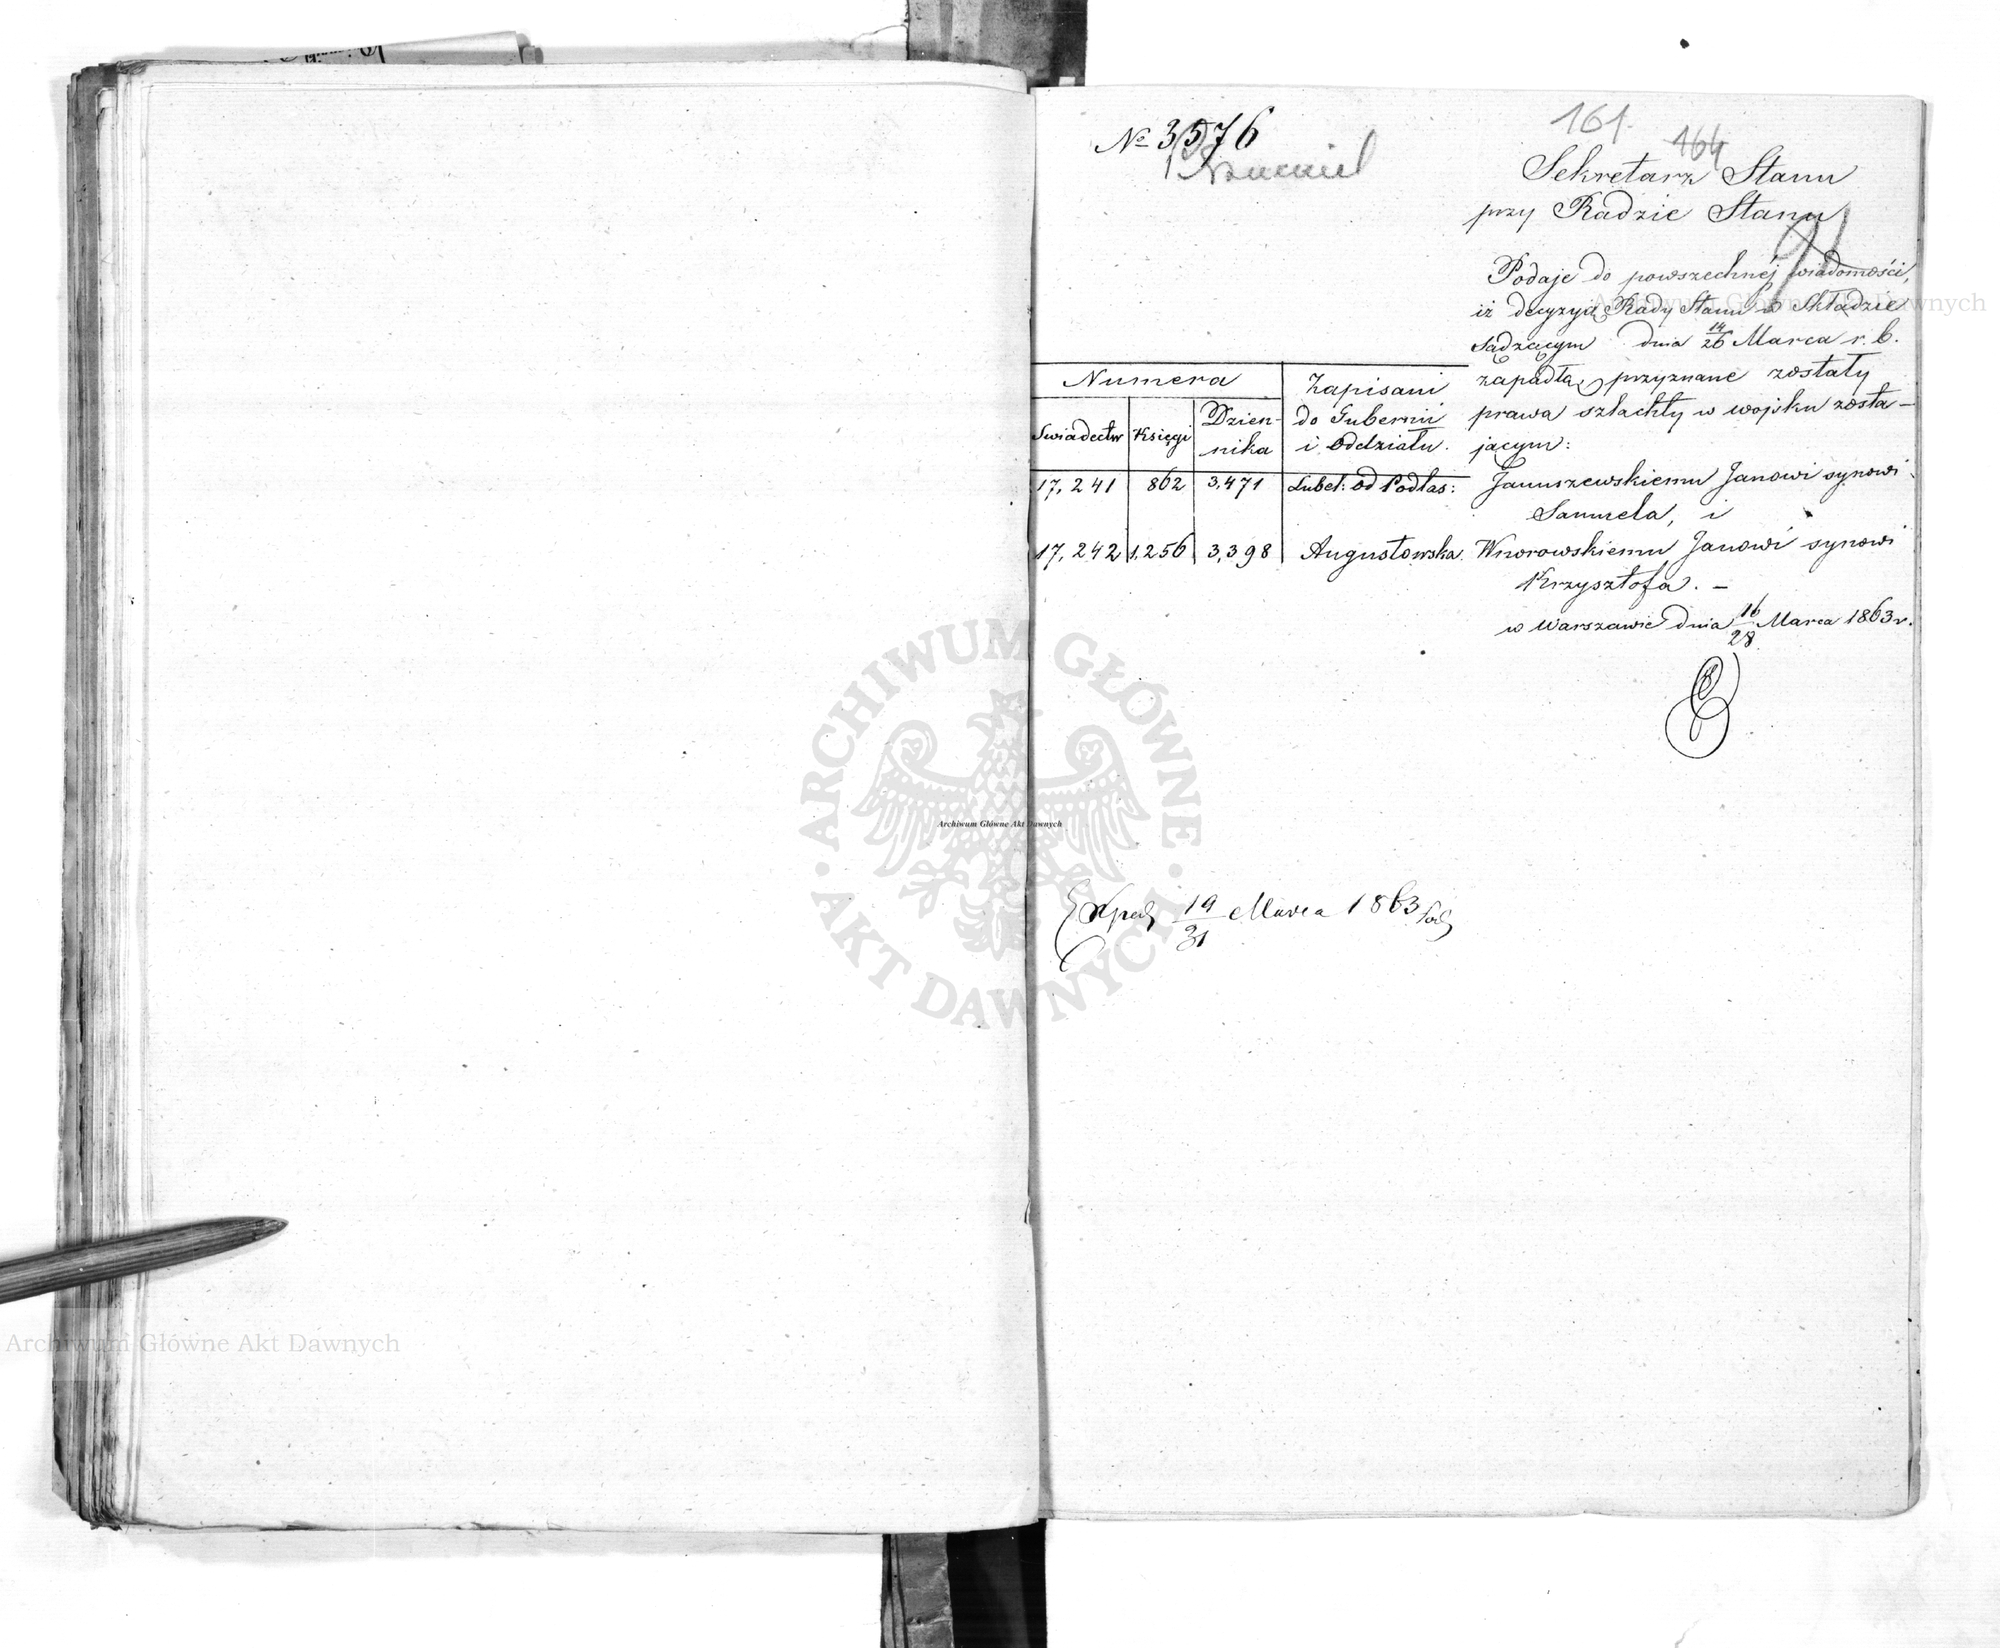 161.
164
№ 3576
Sekretarz Stanu
przy Radzie Stanu
91
Podaje do powszechnéj wiadomości,
iż decyzyą Rady Stanu w Składzie
Sądzącym dnia 14/26 Marca r. b.
zapadłą, przyznane zostały
prawa szlachty w wojsku zosta-
jącym:
Numera
Swiadectw Księgi Dzien-
nika
Zapisani
do Gubernii
i Oddziału.
17,241 862 3,471 Lubel: od Podlas: Januszewskiemu Janowi synowi
Samuela, i
17,242 1,256 3,398 Augustowska. Wnorowskiemu Janowi synowi
Krzysztofa. —
w Warszawie dnia 16/28 Marca 1863 r.
Exped 19/31 Marca 1863
ARCHIWUM GŁÓWNE
AKT DAWNYCH
Archiwum Główne Akt Dawnych
Archiwum Główne Akt Dawnych
Archiwum Główne Akt Dawnych